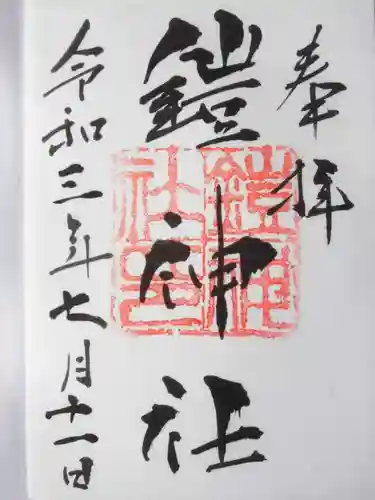 奉拝
鎧神社
鎧神社印
令和三年七月十一日